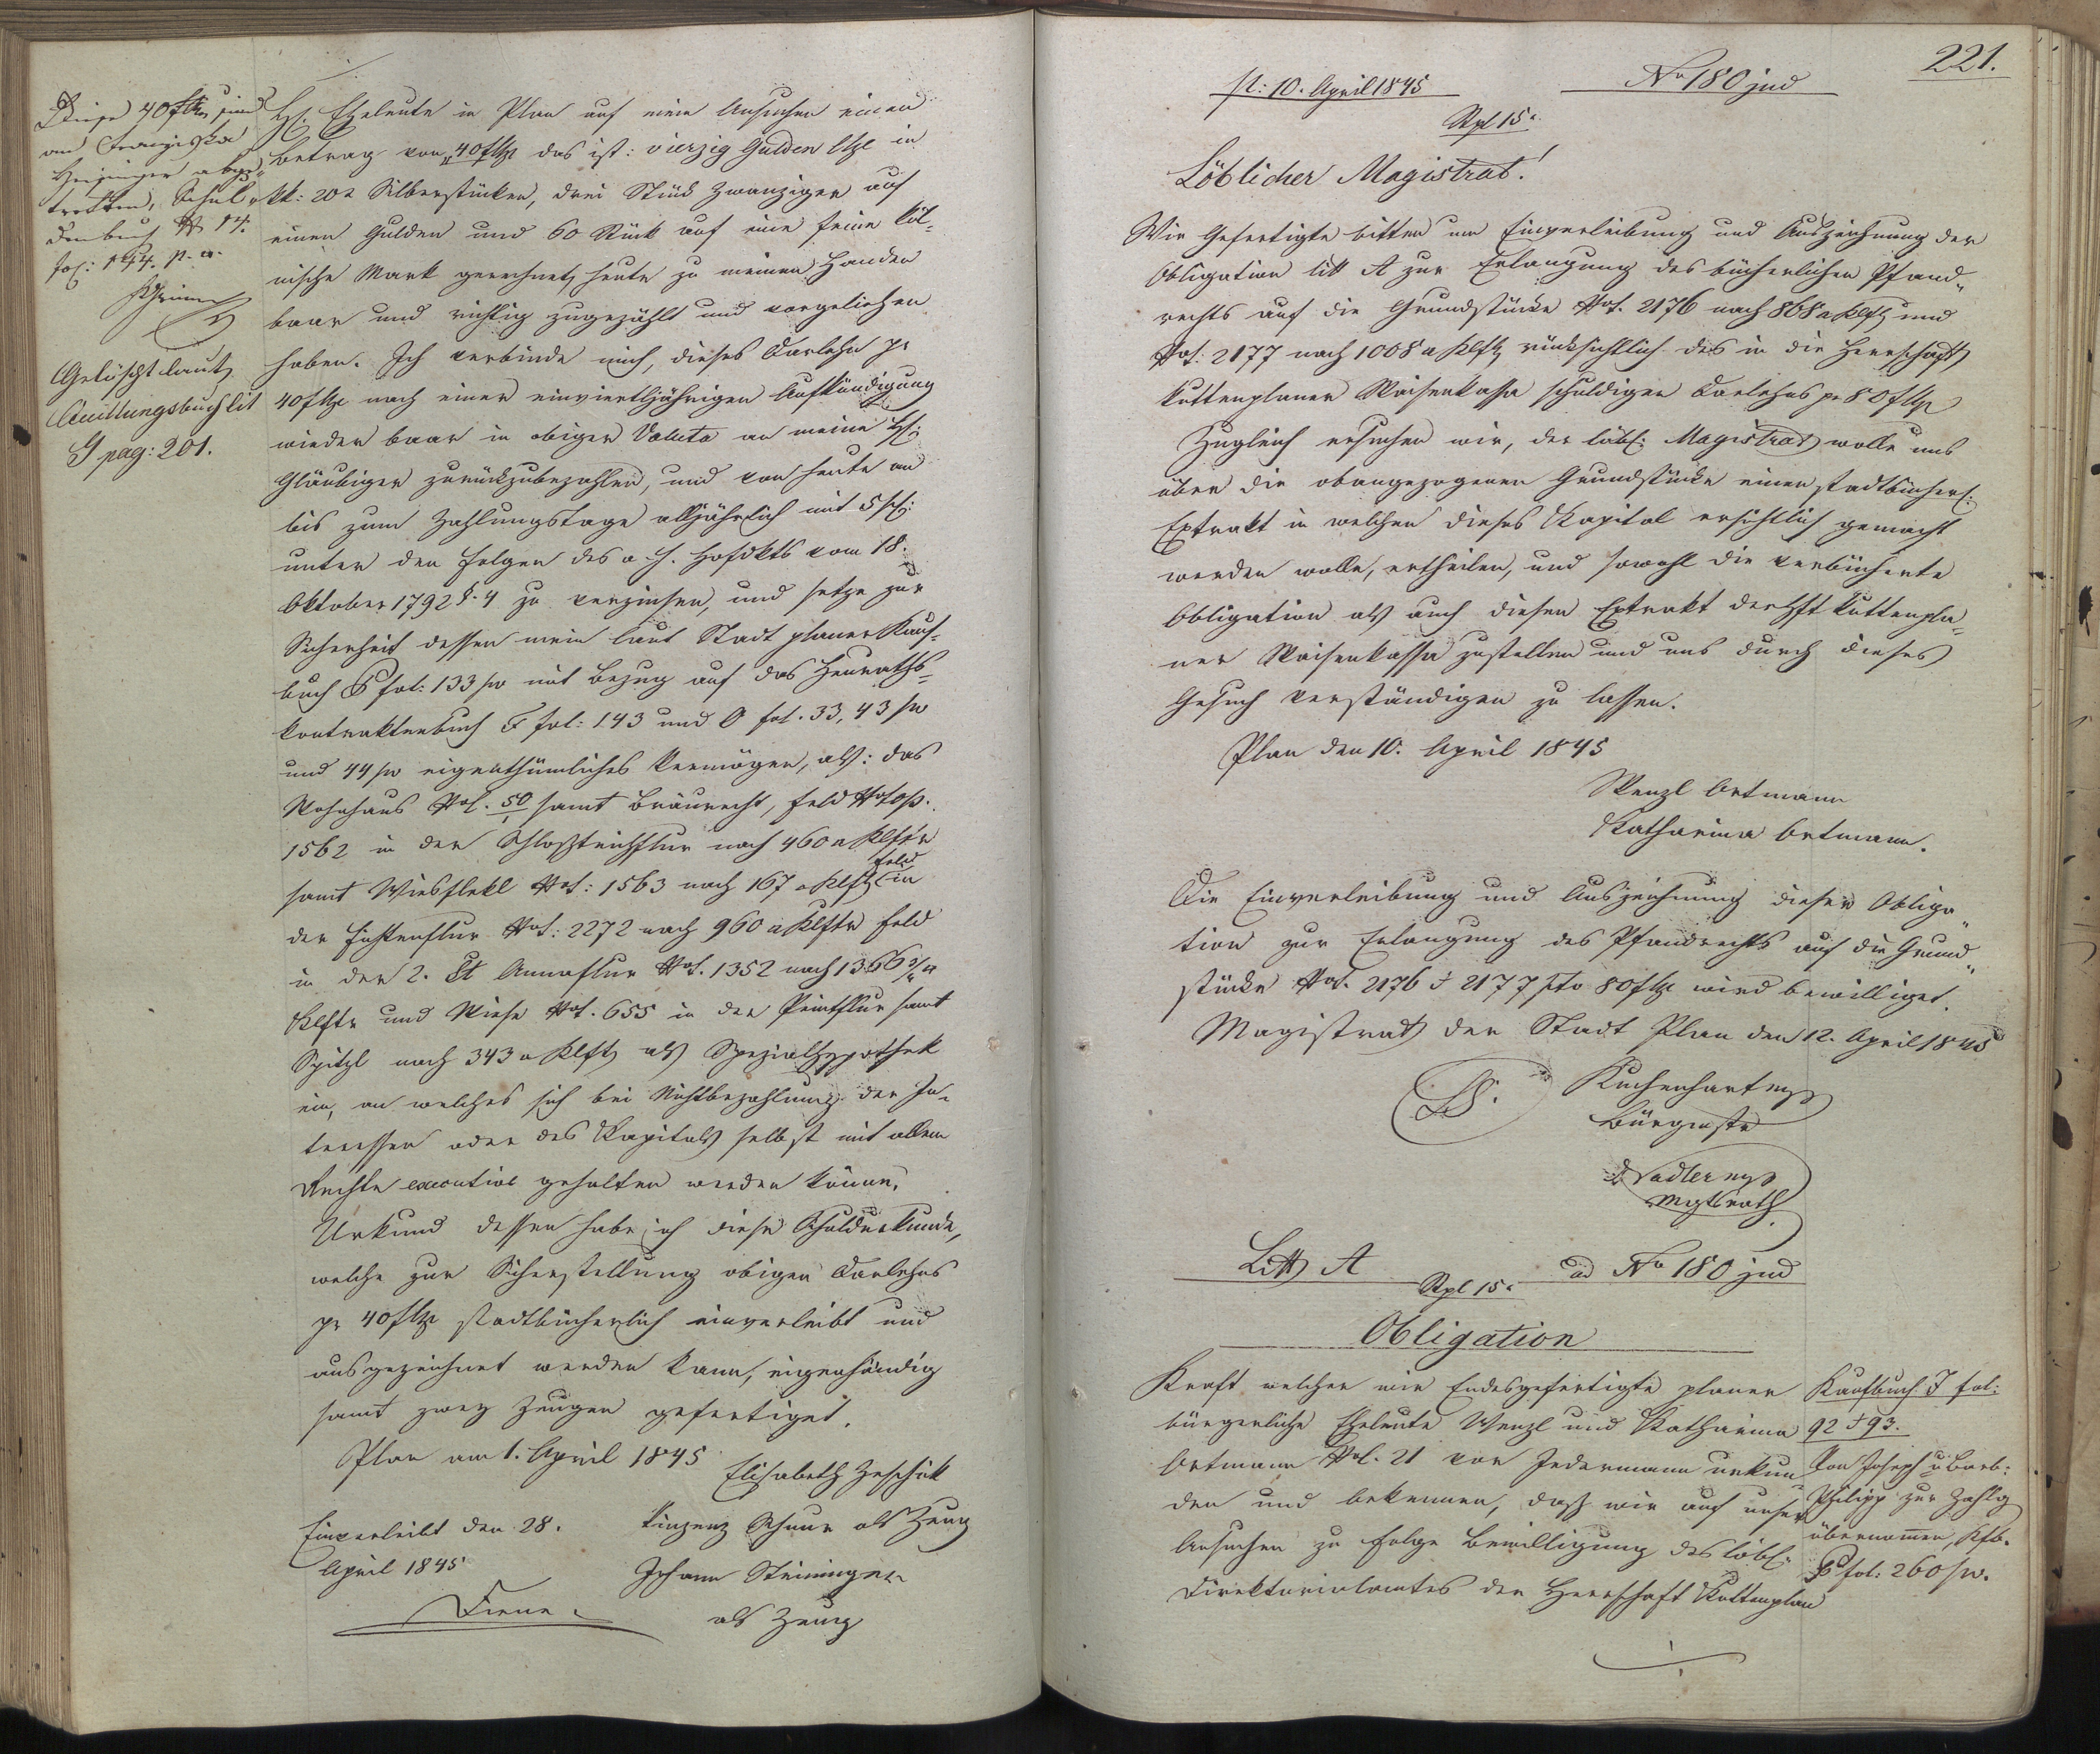 Diese 40 fl sind
an Franziska
abge-
tretten, Schul-
denbuch N 14.
fol: 144. p. a.
Gelöscht laut
Quittungsbuch lit
G pag: 201.
H. Eheleute in Plan auf mein Ansuchen einen
Betrag von 40 f das ist: vierzig Gulden in
kk: 20r Silberstücken, drei Stück Zwanziger auf
einen Gulden und 60 Stück auf eine feine köl-
nische Mark gerechnet, heute zu meinen Handen
baar und richtig zugezählt und vorgeliehen
haben. Ich verbinde mich, dieses Darlehn pr
40 f nach einer einvierteljährigen Aufkündigung
wieder baar in obiger Valuta an meine H:
Gläubiger zurückzubezahlen, und von heute an
bis zum Zahlungstage alljährlich mit 5
unter den Folgen des a. h. Hofdkts vom 18.
Oktober 1792 §. 4 zu verzinsen, und setze zur
Sicherheit dessen mein laut Stadt planer Kauf-
buch fol: 133 mit Bezug auf das Heuraths-
kontraktenbuch F fol: 143 und O fol. 33, 43
und 44 eigenthümliches Vermögen, als: das
Wohnhaus No. 50 samt Bräurecht, Feld
1562 in der Schloßteichflur nach 460 Klftr
samt Wiesflekl 1563 nach 167 Klft Feld in
der 2272 nach 960 Klftr Feld
in der 2. St Annaflur 1352 nach 1366 2/4
Klftr und Wiese 655 in der Peintflur samt
Spitzl nach 343 Klft als Spezialhypothek
ein, an welches sich bei Nichtbezahlung der In-
teressen oder des Kapitals selbst mit allem
Rechte executive gehalten werden könne.
Urkund dessen habe ich diese Schuldurkunde,
welche zur Sicherstellung obigen Darlehns
pr 40 f stadtbücherlich einverleibt und
ausgezeichnet werden kann, eigenhändig
samt zwey Zeugen gefertiget.
Plan am 1. April 1845
Elisabeth Zeschik
Einverleibt den 28.
April 1845
Vinzenz Schnur als Zeug
Johann Steininger
als Zeug
221.
pr: 10. April 1845
No 180 jud
Stpl 15r
Löblicher Magistrat!
Wir Gefertigte bitten um Einverleibung und Auszeichnung der
Obligation litt A zur Erlangung des bücherlichen Pfand-
rechts auf die Grundstücke 2176 nach 868 Klft und
2177 nach 1008 Klft rücksichtlich des in die Herrschaft
kuttenplaner Waisenkassa schuldigen Darlehns pr 80 f
Zugleich ersuchen wir, der löbl: Magistrat wolle uns
über die obangezogenen Grundstücke einen stadtbücherl:
Extrakt in welchen dieses Kapital ersichtlich gemacht
werden wolle, ertheilen, und sowohl die verbücherte
Obligation als auch diesen Extrakt der Hft kuttenpla-
ner Waisenkassa zustellen und uns durch dieses
Gesuch verständigen zu lassen.
Plan den 10. April 1845
Wenzl Ortmann
Katharina Ortmann.
Die Einverleibung und Auszeichnung dieser Obliga-
tion zur Erlangung des Pfandrechts auf die Grund-
stücke 2176 & 2177 pto 80 f wird bewilliget.
Magistrat der Stadt Plan den 12. April 1845
LS.
Kuchenhart
Bürgmstr
Sadler
Mgtsrath
Litt A
Stpl 15r
ad No 180 jud
Obligation
Kraft welcher wir Endesgefertigte planer
bürgerliche Eheleute Wenzl und Katharina
Ortmann 21 vor Jedermann urkun
den und bekennen, daß wir auf unser
Ansuchen zu Folge Bewilligung des löbl:
Direktorialamtes der Herrschaft Kuttenplan
Kaufbuch J fol:
92 & 93.
Von Joseph u Barb:
Philipp zur Zahlg
übernomen, Kfb.
P fol: 260